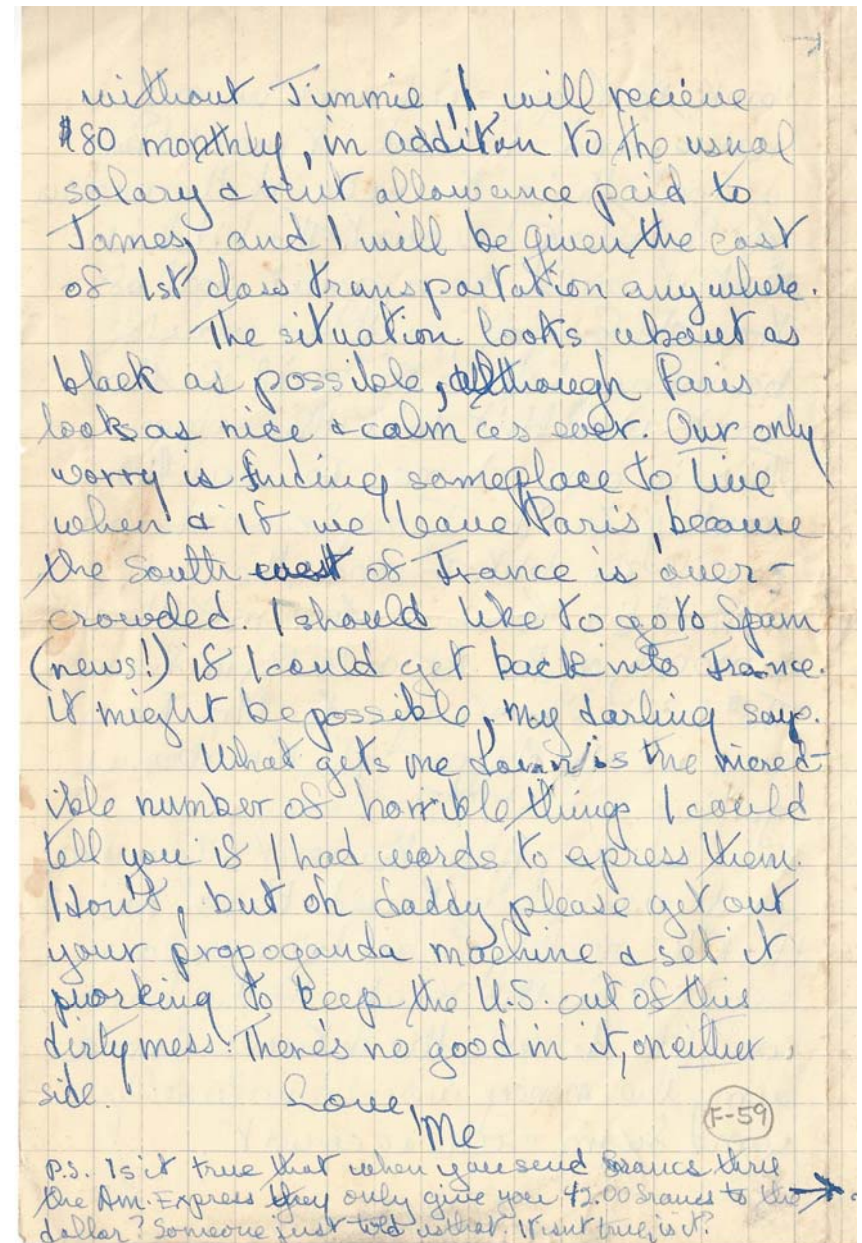 without Jimmie, I will recieve
$80 monthly, in additon to the usual
salary & rent allowance paid to
James, and I will be given the cost
of 1st class transportation anywhere.
The situation looks about as
black as possible, although Paris
looks as nice & calm as ever. Our only
worry is finding someplace to live
when & if we leave Paris, because
the South west of France is over-
crowded. I should like to go to Spain
(news!) if I could get back into France.
It might be possible, my darling says.
What gets me down is the incred-
ible number of horrible things I could
tell you if I had words to express them.
I don't, but oh Daddy please get out
your propoganda machine & set it
working to keep the U.S. out of this
dirty mess! There's no good in it, on either
side.
Love,
Me
F-59
P.S. Is it true that when you send francs thru
the Am. Express they only give you 42.00 francs to the →
dollar? Someone just told us that. It isnt true, is it?